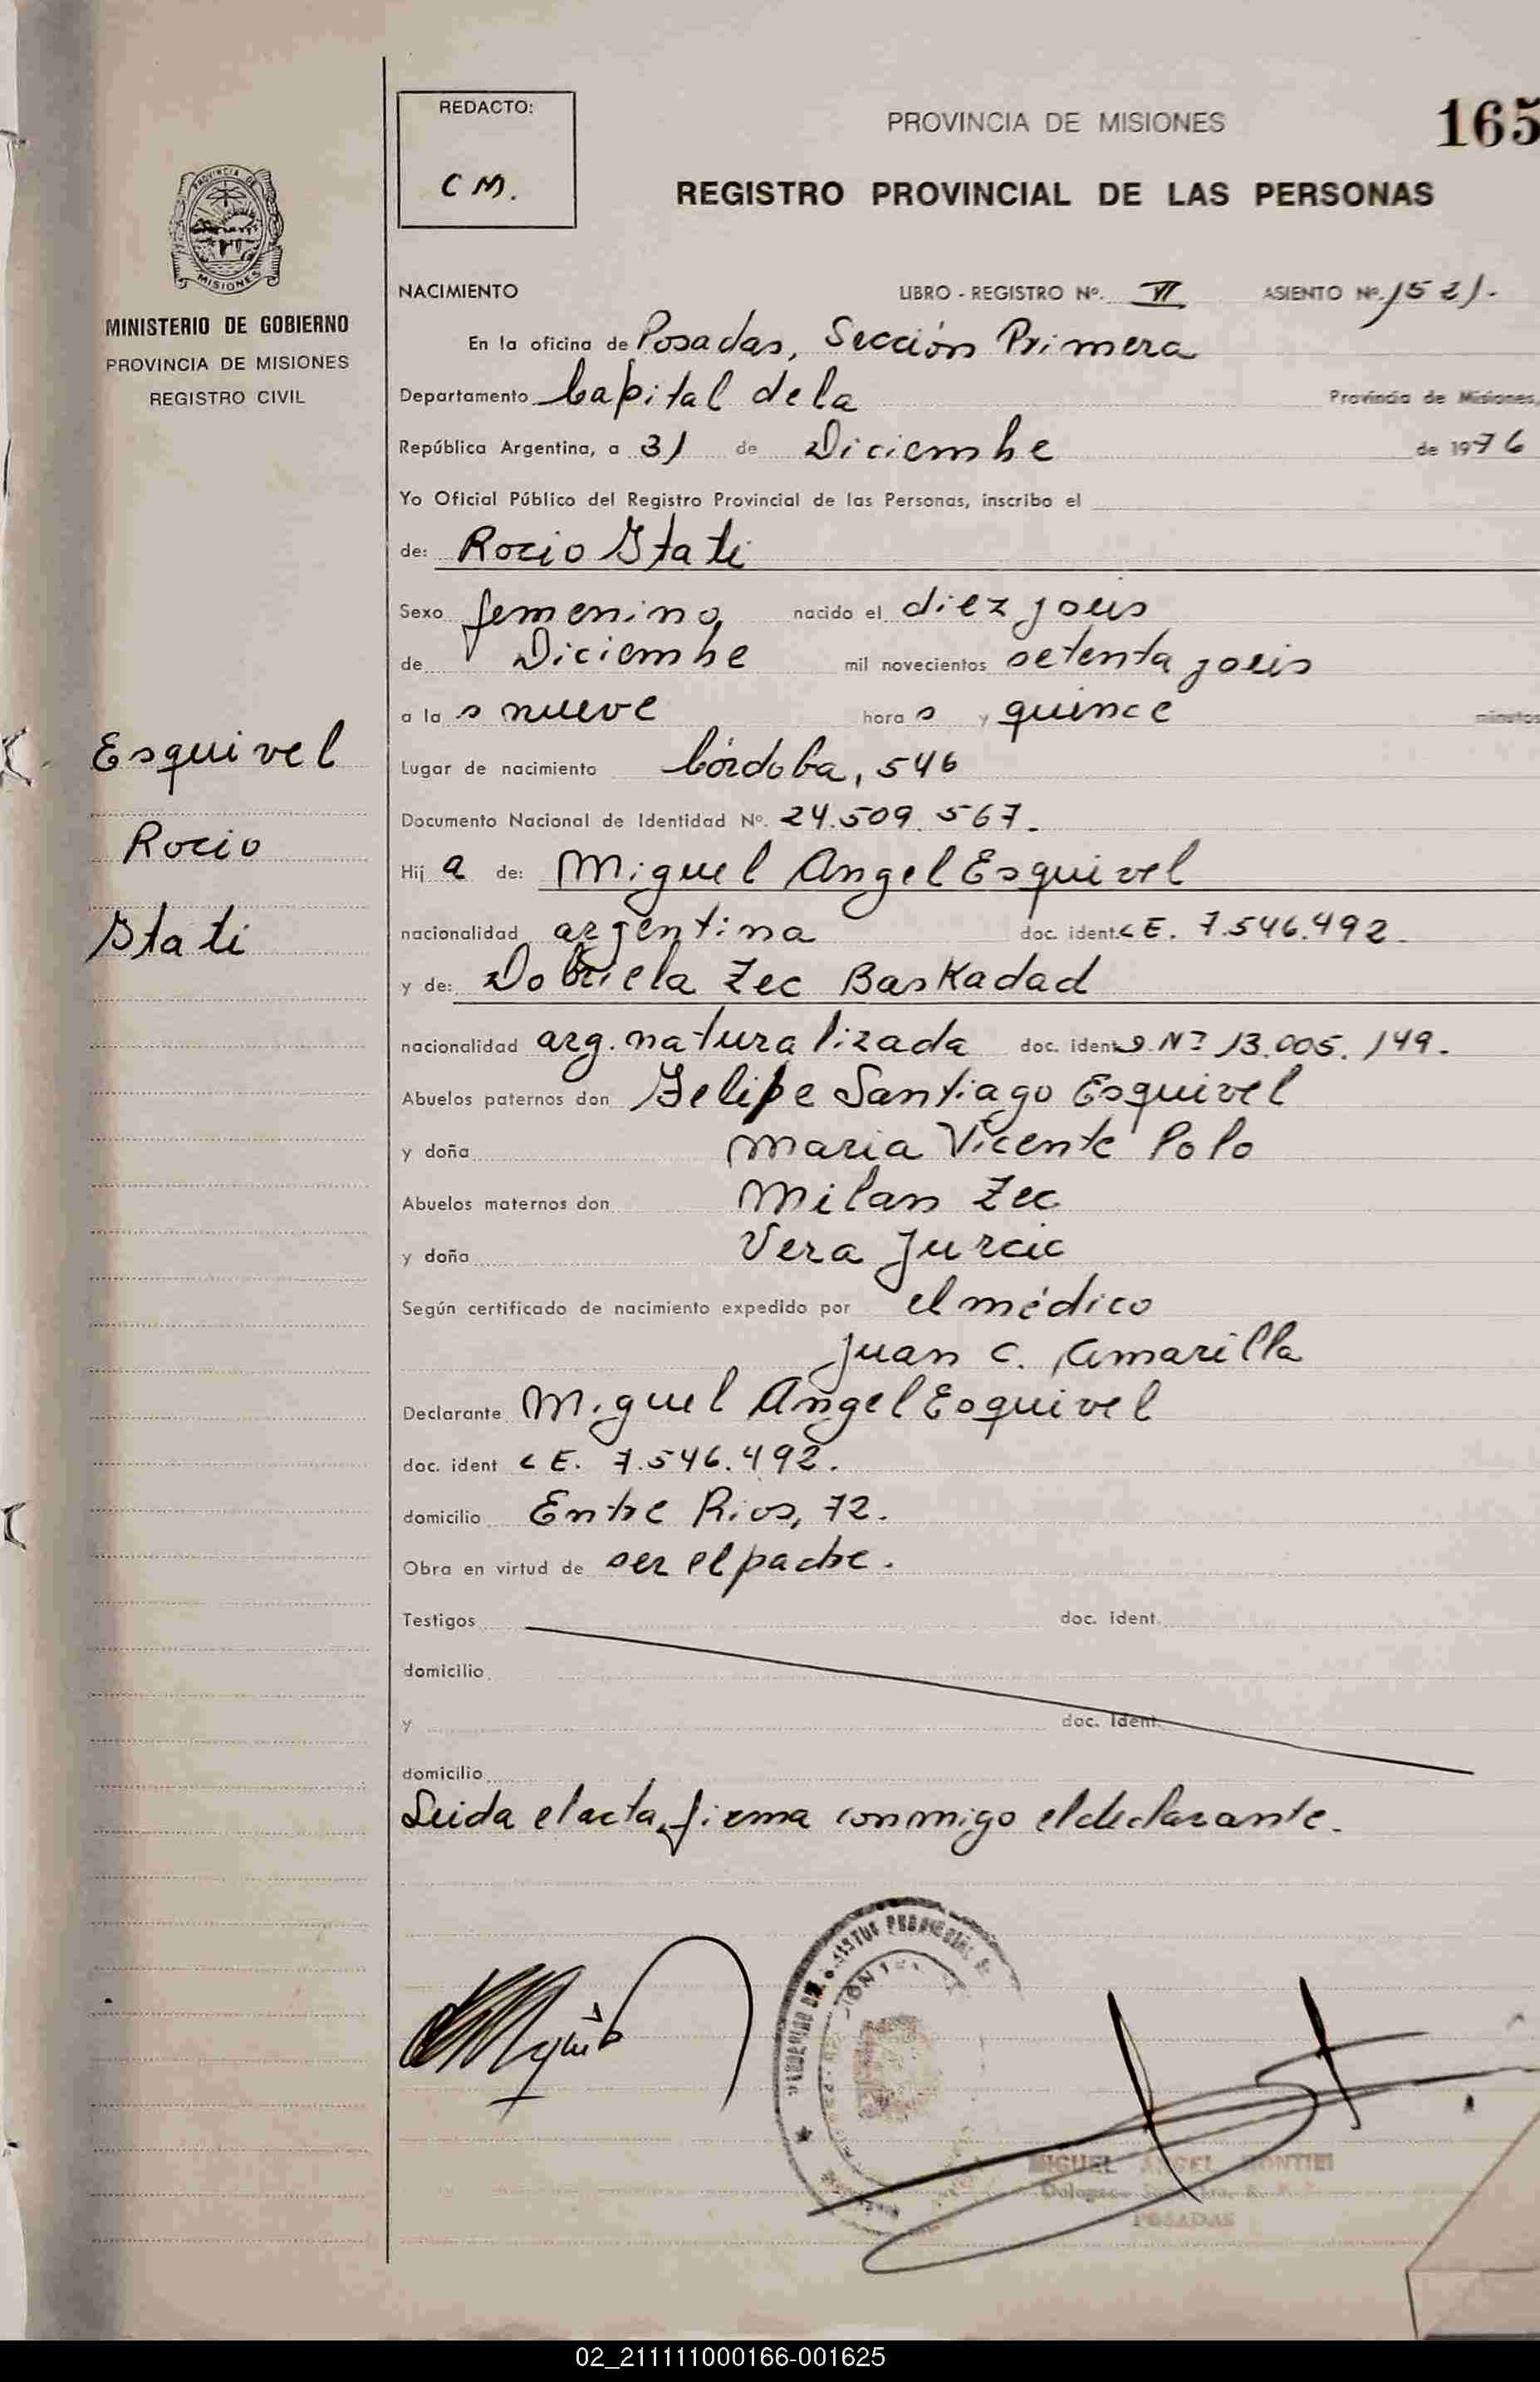 REDACTO:
C M.
PROVINCIA DE MISIONES
165
REGISTRO PROVINCIAL DE LAS PERSONAS
PROVINCIA DE
MISIONES
MINISTERIO DE GOBIERNO
PROVINCIA DE MISIONES
REGISTRO CIVIL
Esquivel
Rocio
Stati
NACIMIENTO LIBRO - REGISTRO Nº. VI ASIENTO Nº. 1521.
En la oficina de Posadas, Sección Primera
Departamento Capital de la Provincia de Misiones,
República Argentina, a 31 de Diciembre de 1976
Yo Oficial Público del Registro Provincial de las Personas, inscribo el
de: Rocio Stati
Sexo femenino nacido el diez y seis
de Diciembre mil novecientos setenta y seis
a la s nueve hora s y quince minutos
Lugar de nacimiento Córdoba, 546
Documento Nacional de Identidad Nº. 24.509.567.
Hij a de: Miguel Angel Esquivel
nacionalidad argentina doc. ident. LE. 7.546.492.
y de: Dobriela Zec Baskadad
nacionalidad arg. naturalizada doc. ident Nº 13.005.149.
Abuelos paternos don Felipe Santiago Esquivel
y doña Maria Vicente Polo
Abuelos maternos don Milan Zec
y doña Vera Jurcic
Según certificado de nacimiento expedido por el médico
Juan C. Amarilla
Declarante Miguel Angel Esquivel
doc. ident LE. 7.546.492.
domicilio Entre Rios, 72.
Obra en virtud de ser el padre.
Testigos doc. ident.
domicilio
y doc. ident.
domicilio
Leida el acta, firma conmigo el declarante.
MIGUEL ANGEL MONTIEL
POSADAS
02_211111000166-001625